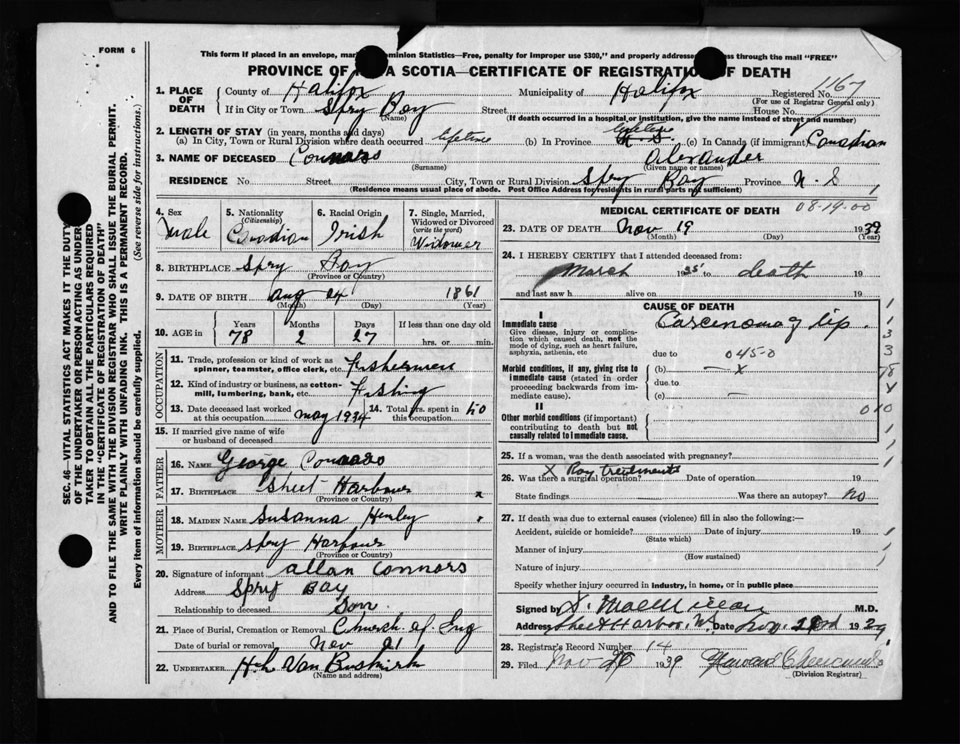 FORM 6
This form if placed in an envelope, mar Dominion Statistics—Free, penalty for improper use $300," and properly addresse ss through the mail "FREE"
PROVINCE OF A SCOTIA—CERTIFICATE OF REGISTRATION OF DEATH
1. PLACE OF DEATH County of Halifax Municipality of Halifax Registered No. 1167
(For use of Registrar General only)
If in City or Town Spry Bay Street House No.
(Name) (If death occurred in a hospital or institution, give the name instead of street and number)
2. LENGTH OF STAY (in years, months and days)
(a) In City, Town or Rural Division where death occurred lifetime (b) In Province lifetime N. S. (c) In Canada (if immigrant) Canadian
3. NAME OF DECEASED Connors Alexander
(Surname) (Given name or names)
RESIDENCE No. Street City, Town or Rural Division Spry Bay Province N. S
(Residence means usual place of abode. Post Office Address for residents in rural parts not sufficient)
4. Sex Male
5. Nationality (Citizenship) Canadian
6. Racial Origin Irish
7. Single, Married, Widowed or Divorced (write the word) Widower
8. BIRTHPLACE Spry Bay
(Province or Country)
9. DATE OF BIRTH Aug 24 1861
(Month) (Day) (Year)
10. AGE in Years Months Days If less than one day old
78 2 27 hrs. or min.
OCCUPATION
11. Trade, profession or kind of work as spinner, teamster, office clerk, etc. Fishermen
12. Kind of industry or business, as cotton-mill, lumbering, bank, etc. Fishing
13. Date deceased last worked at this occupation May 1934 14. Total yrs. spent in this occupation 50
15. If married give name of wife or husband of deceased
FATHER
16. NAME George Connors
17. BIRTHPLACE Sheet Harbour x
(Province or Country)
MOTHER
18. MAIDEN NAME Susanna Henley
19. BIRTHPLACE Spry Harbour
(Province or Country)
20. Signature of informant Allan Connors
Address Spry Bay
Relationship to deceased Son
21. Place of Burial, Cremation or Removal Church of Eng
Date of burial or removal Nov 21
22. UNDERTAKER H L Van Buskirk
(Name and address)
08-19-00
MEDICAL CERTIFICATE OF DEATH
23. DATE OF DEATH Nov 19 1939
(Month) (Day) (Year)
24. I HEREBY CERTIFY that I attended deceased from:
March 1935 to death 19
and last saw h alive on 19
CAUSE OF DEATH
I
Immediate cause Carcinoma of lip.
Give disease, injury or complication which caused death, not the mode of dying, such as heart failure, asphyxia, asthenia, etc
due to 045-0
Morbid conditions, if any, giving rise to immediate cause (stated in order proceeding backwards from immediate cause).
(b) — x
due to
(c) —
010
II
Other morbid conditions (if important) contributing to death but not causally related to immediate cause.
25. If a woman, was the death associated with pregnancy?
X Ray treatments
26. Was there a surgical operation? Date of operation 19
State findings Was there an autopsy? no
27. If death was due to external causes (violence) fill in also the following:—
Accident, suicide or homicide? Date of injury 19
(State which)
Manner of injury
(How sustained)
Nature of injury
Specify whether injury occurred in industry, in home, or in public place
Signed by M.D.
Address Sheet Harbor, NS Date Nov. 1929
28. Registrar's Record Number 14
29. Filed Nov 1939 Howard
(Division Registrar)
SEC. 46—VITAL STATISTICS ACT MAKES IT THE DUTY
OF THE UNDERTAKER OR PERSON ACTING AS UNDER
TAKER TO OBTAIN ALL THE PARTICULARS REQUIRED
IN THE "CERTIFICATE OF REGISTRATION OF DEATH"
AND TO FILE THE SAME WITH THE DIVISION REGISTRAR WHO SHALL ISSUE THE BURIAL PERMIT.
WRITE PLAINLY WITH UNFADING INK. THIS IS A PERMANENT RECORD.
Every item of information should be carefully supplied. (See reverse side for instructions.)